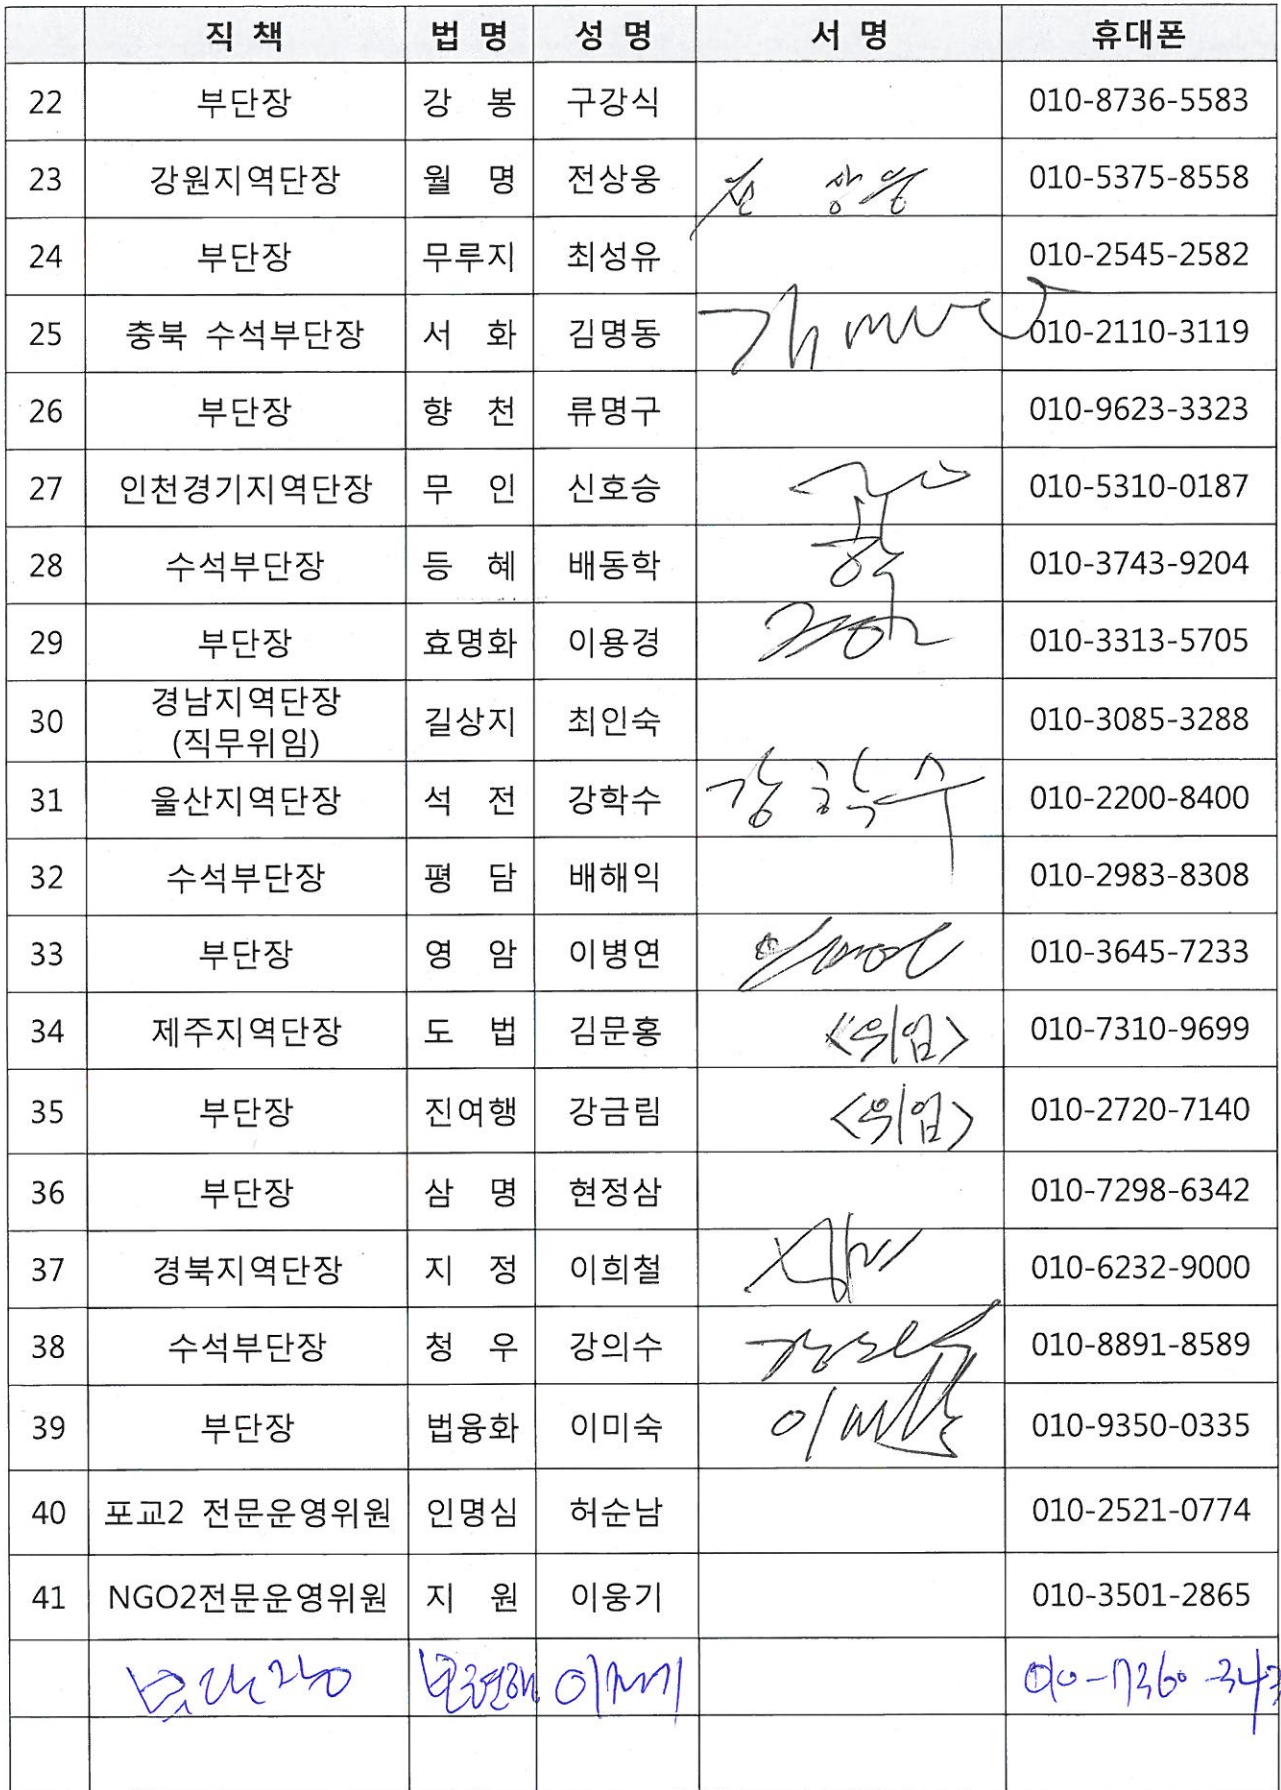 직 책 법 명 성 명 서 명 휴대폰
22 부단장 강 봉 구강식 010-8736-5583
23 강원지역단장 월 명 전상웅 전 상웅 010-5375-8558
24 부단장 무루지 최성유 010-2545-2582
25 충북 수석부단장 서 화 김명동 010-2110-3119
26 부단장 향 천 류명구 010-9623-3323
27 인천경기지역단장 무 인 신호승 010-5310-0187
28 수석부단장 등 혜 배동학 010-3743-9204
29 부단장 효명화 이용경 010-3313-5705
30 경남지역단장 길상지 최인숙 010-3085-3288
(직무위임)
31 울산지역단장 석 전 강학수 강학수 010-2200-8400
32 수석부단장 평 담 배해익 010-2983-8308
33 부단장 영 암 이병연 010-3645-7233
34 제주지역단장 도 법 김문홍 <위임> 010-7310-9699
35 부단장 진여행 강금림 <위임> 010-2720-7140
36 부단장 삼 명 현정삼 010-7298-6342
37 경북지역단장 지 정 이희철 010-6232-9000
38 수석부단장 청 우 강의수 010-8891-8589
39 부단장 법융화 이미숙 이미숙 010-9350-0335
40 포교2 전문운영위원 인명심 허순남 010-2521-0774
41 NGO2전문운영위원 지 원 이웅기 010-3501-2865
부단장